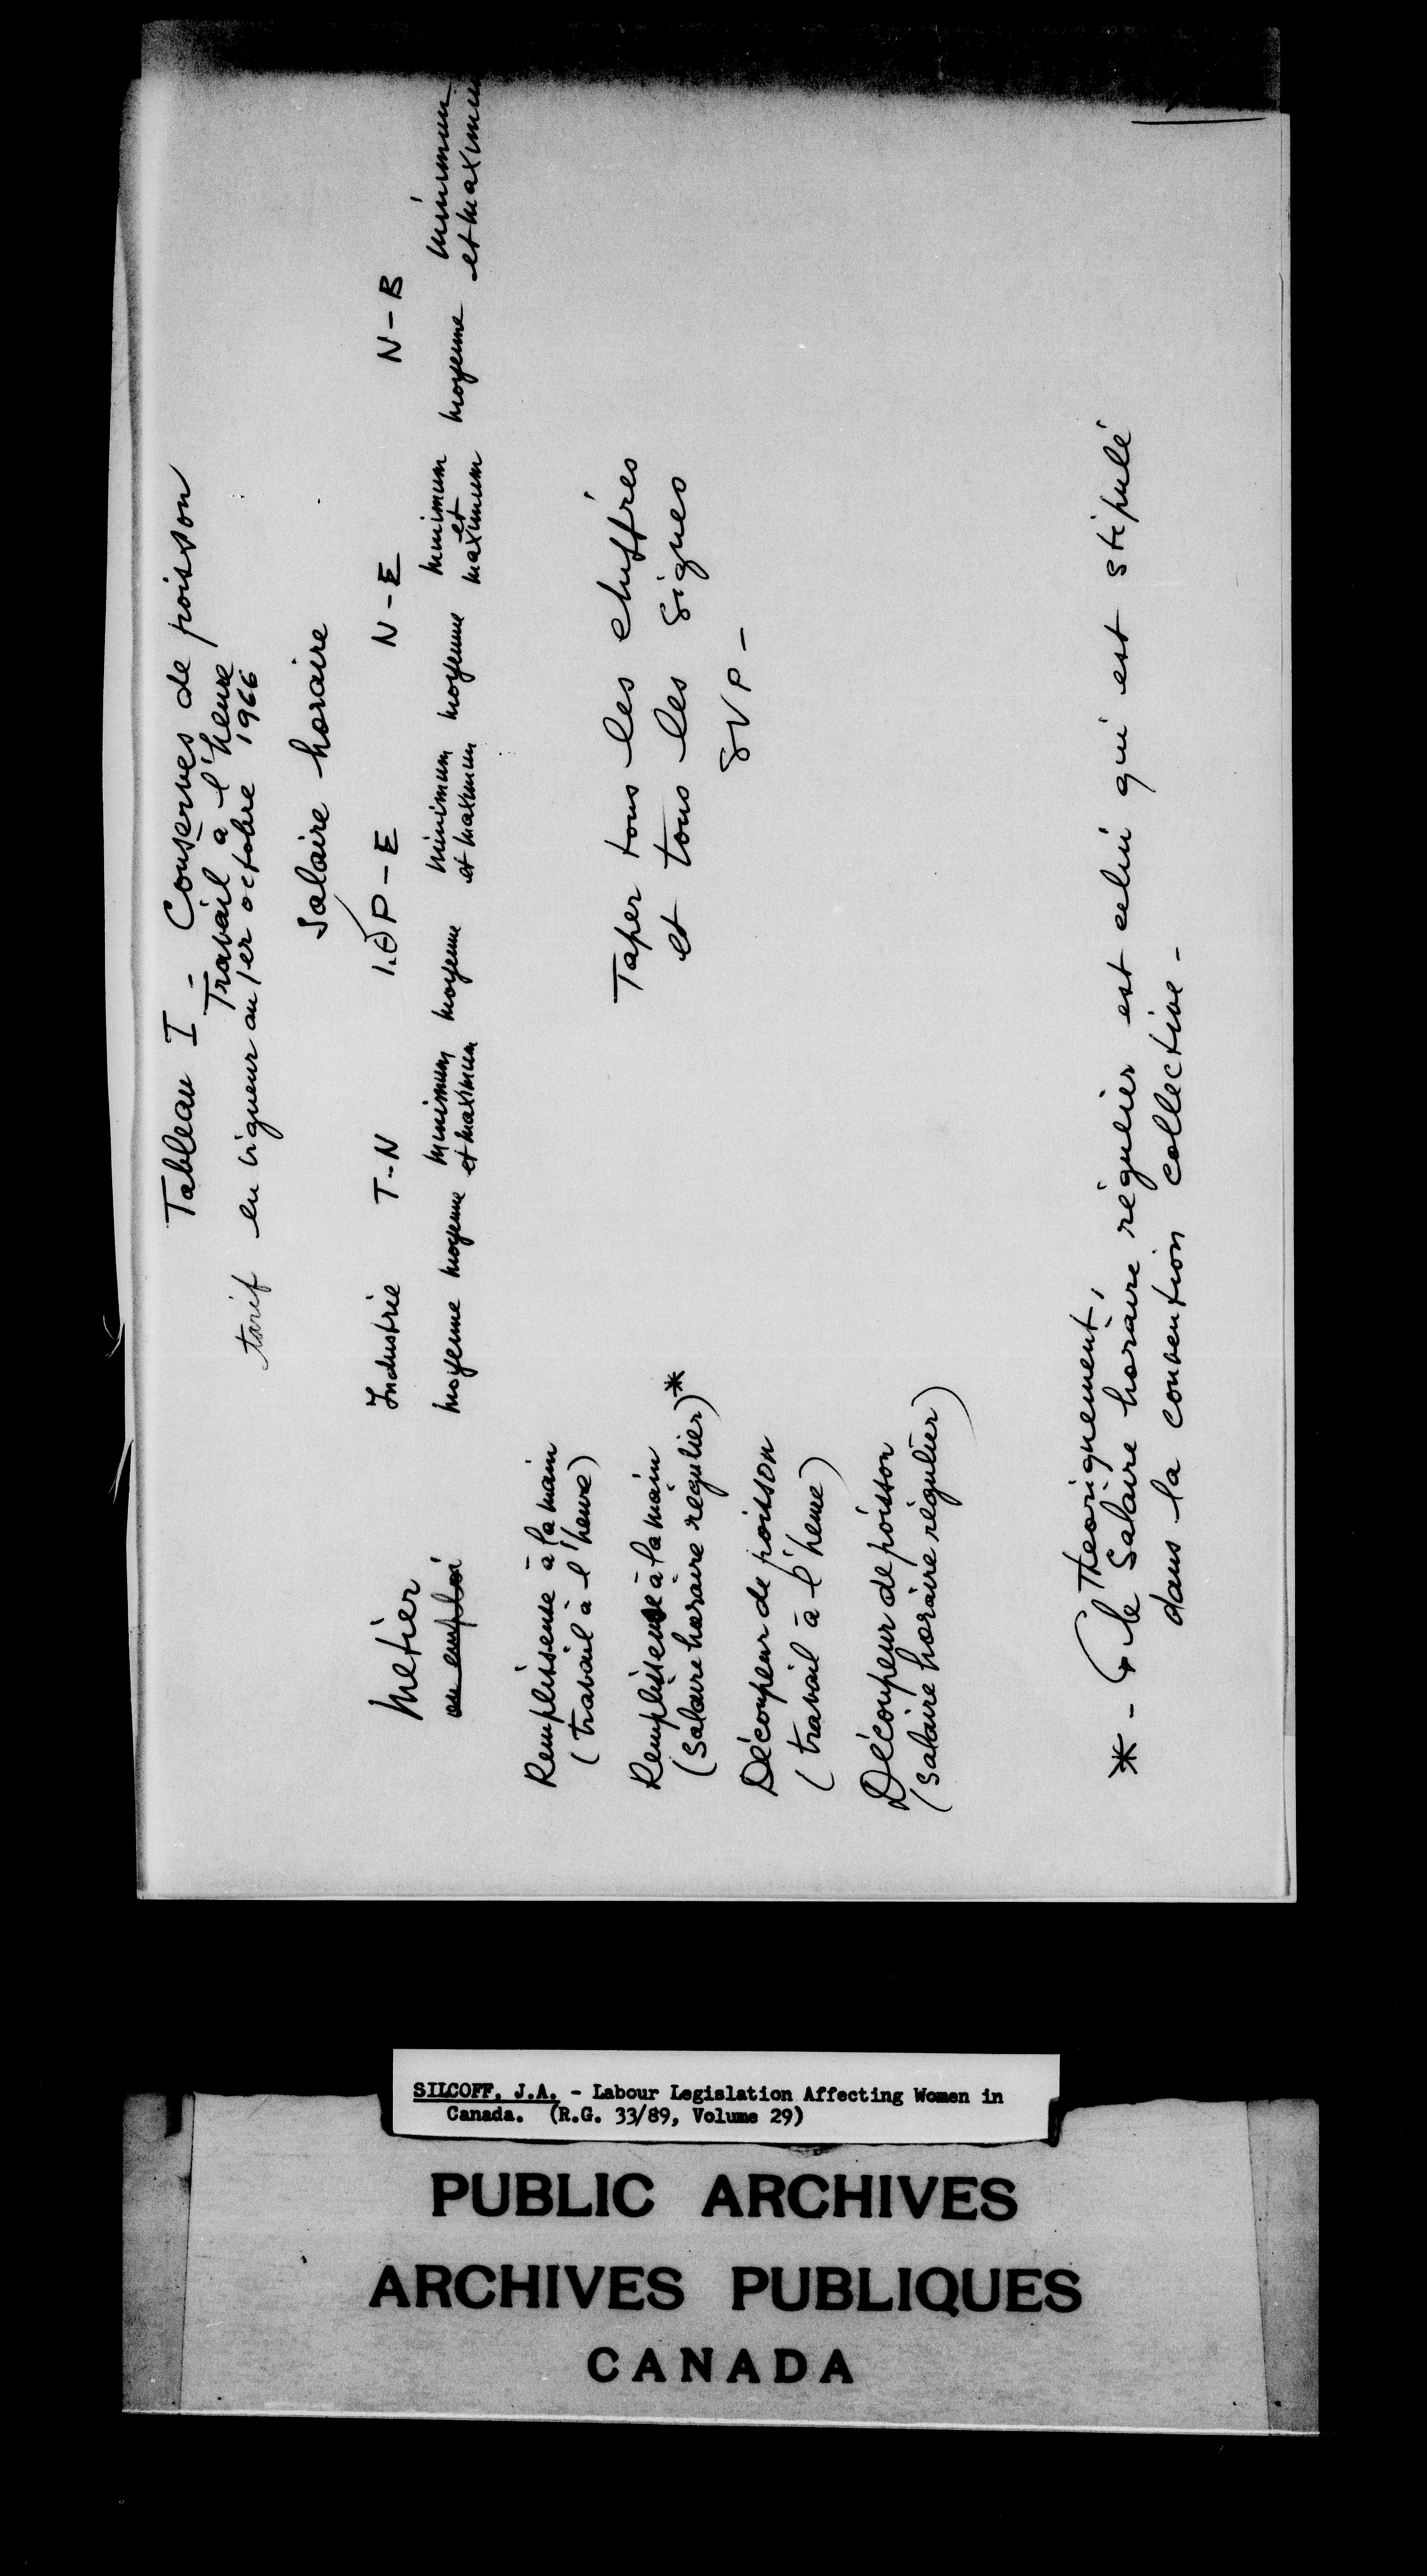 Tableau I - Conserves de poisson
Travail à l'heure
tarif en vigueur au 1er octobre 1966
Salaire horaire
Métier Industrie T-N I.P-E N-E N-B
ou emploi
moyenne moyenne minimum moyenne minimum moyenne minimum moyenne minimum
et maximum et maximum et maximum et maximum
Remplisseuse à la main
(travail à l'heure)
Remplisseuse à la main
(salaire horaire régulier)*
Découpeur de poisson
(travail à l'heure)
Découpeur de poisson
(salaire horaire régulier)
Taper tous les chiffres
et tous les signes
SVP -
* - Théoriquement,
le salaire horaire régulier est celui qui est stipulé
dans la convention collective -
SILCOFF, J.A. - Labour Legislation Affecting Women in
Canada. (R.G. 33/89, Volume 29)
PUBLIC ARCHIVES
ARCHIVES PUBLIQUES
CANADA